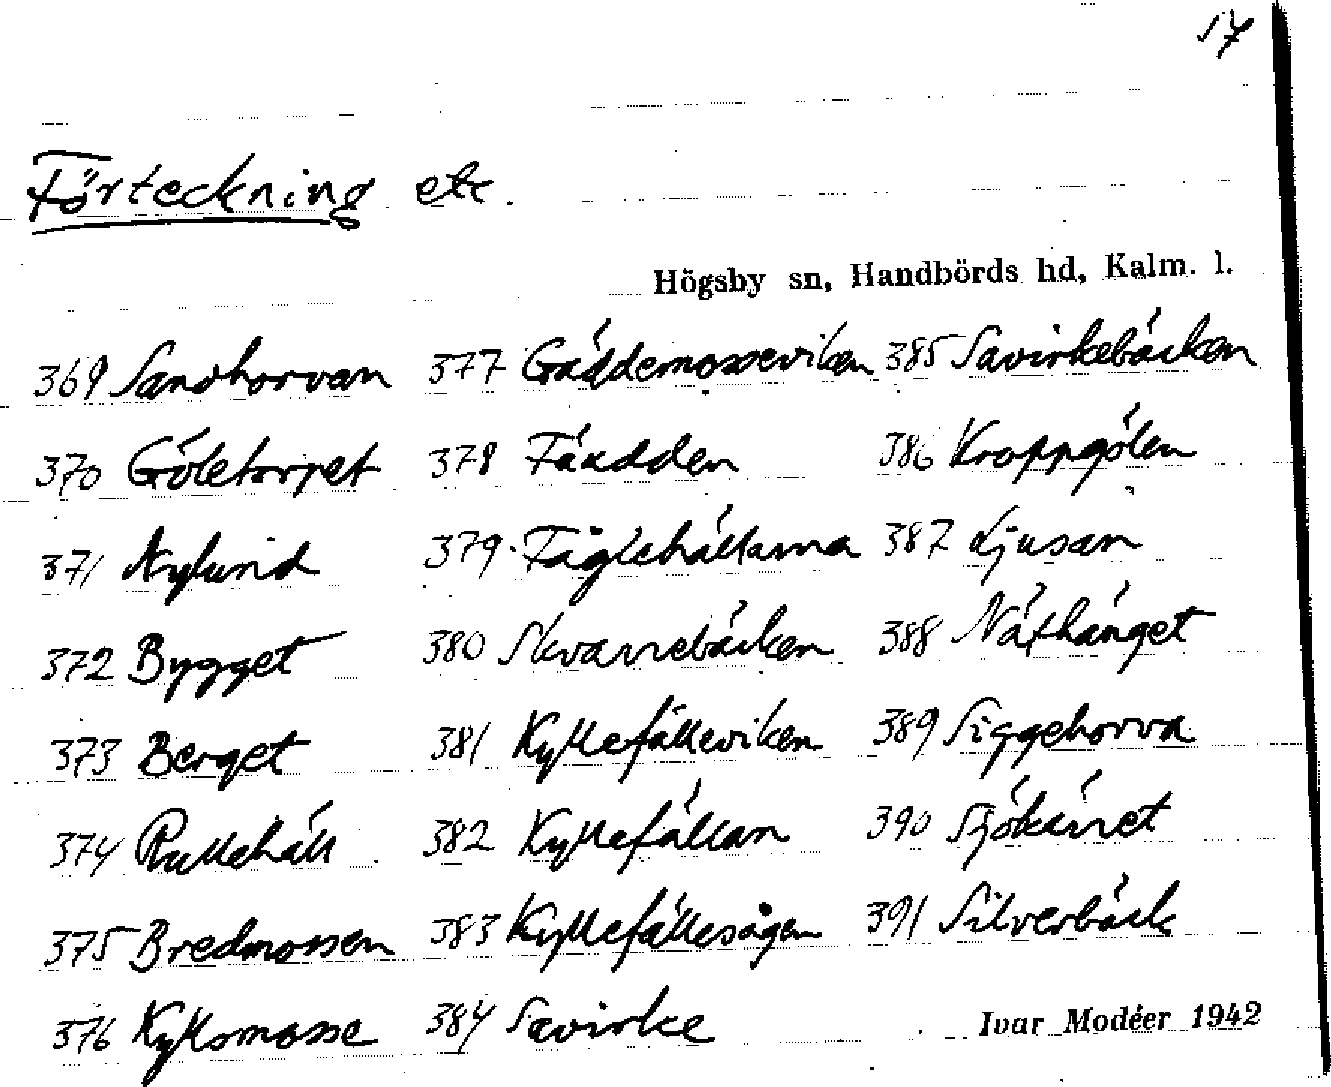 17
Förteckning etc.
Högsby sn, Handbörds hd, Kalm. l.
369 Sandhorvan 377 Gäddemosseviken 385 Savirkebäcken
370 Göletorpet 378 Fäadden 386 Kroppgölen
371 Nylund 379 Fåglehällarna 387 Ljusan
372 Bygget 380 Skvarrebäcken 388 Näthänget
373 Berget 381 Kyllefälleviken 389 Siggehorva
374 Rullehäll 382 Kyllefällan 390 Sjökärret
375 Bredmossen 383 Kyllefällesågen 391 Silverbäck
376 Kyllsmosse 384 Savirke
Ivar Modéer 1942